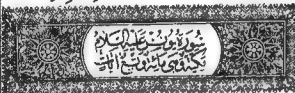 سُورَةُ يُونُسَ عَلَيْهِ السَّلَامُ
مَكِّيَّةٌ وَهِيَ مِائَةٌ وَتِسْعُ آيَاتٍ